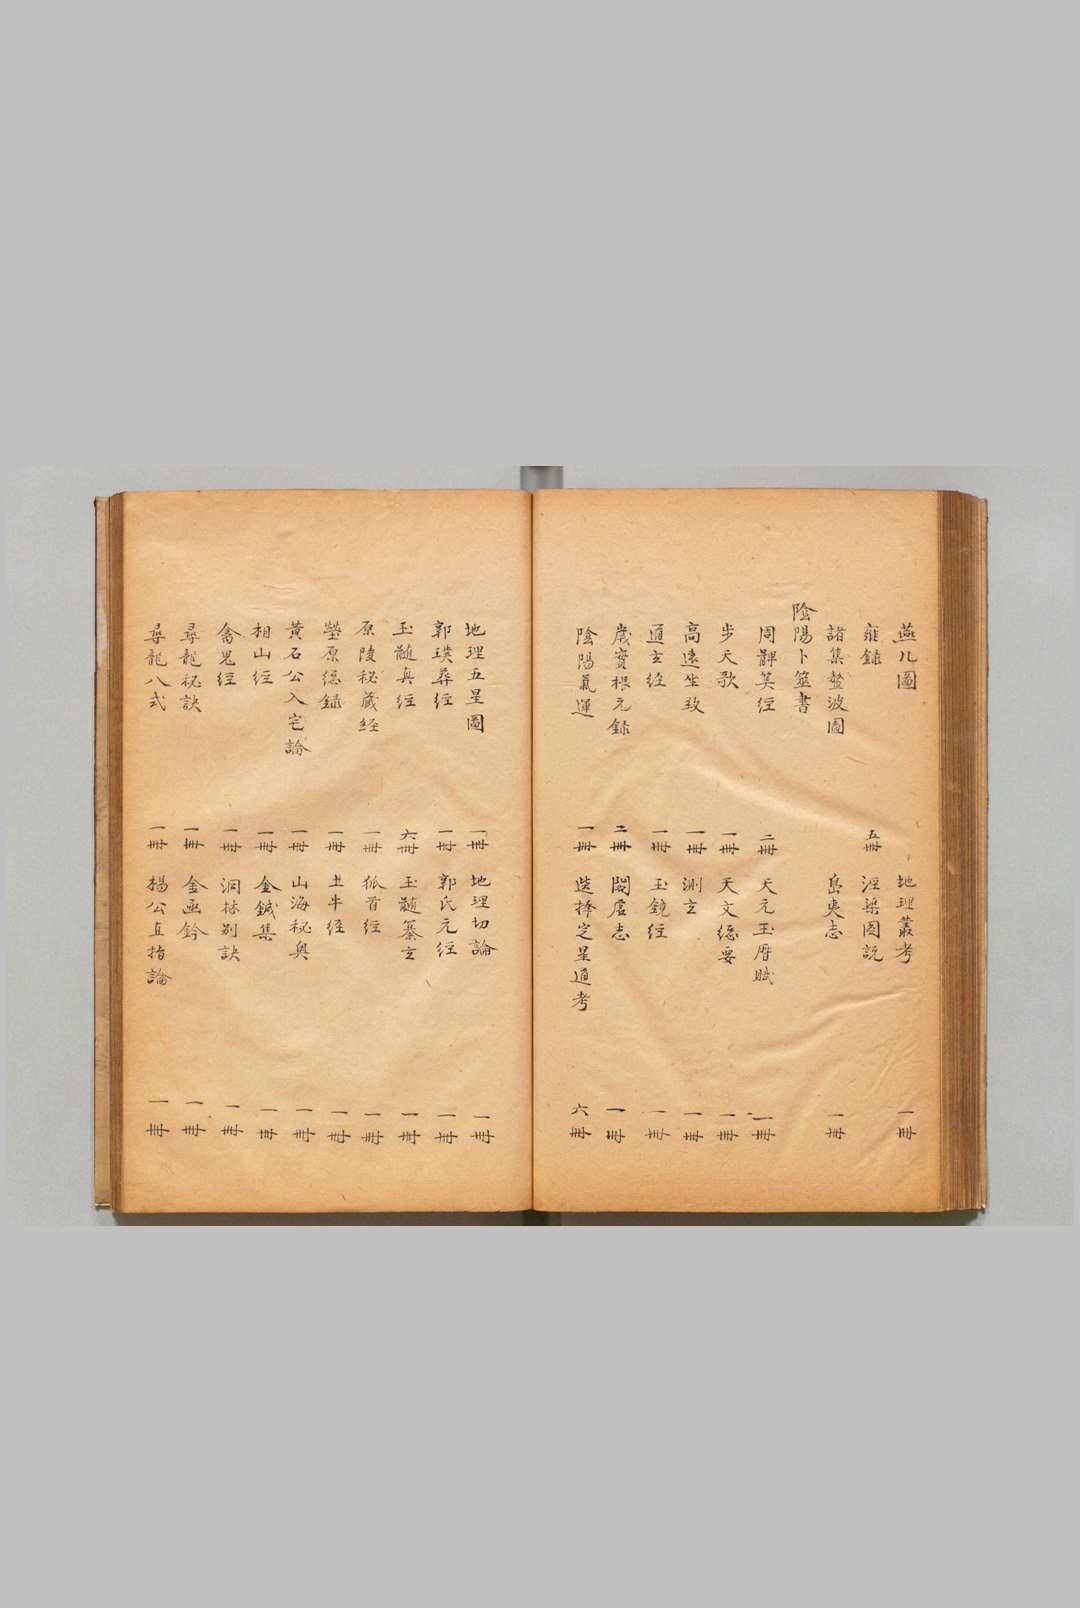 燕几圖　地理叢考　一冊
雍録　五冊　涇渠圖説
諸集螯波圖　島夷志　一冊
陰陽卜筮書
周髀筭經　二冊　天元玉曆賦　一冊
步天歌　一冊　天文總要　一冊
高遠坐致　一冊　測玄　一冊
通玄經　一冊　玉鏡經　一冊
歲實根元錄　二冊　閣虛志　一冊
陰陽氣運　一冊　選擇定星通考　六冊
地理五星圖　一冊　地理切論　一冊
郭璞葬經　一冊　郭氏元經　一冊
玉髓真經　六冊　玉髓纂玄　一冊
原陵秘藏経　一冊　狐首經　一冊
塋原總錄　一冊　丑牛經　一冊
黃石公入宅論　一冊　山海秘奥　一冊
相山經　一冊　金鍼集　一冊
禽鬼經　一冊　洞林别訣　一冊
尋龍秘訣　一冊　金函鈐　一冊
尋龍八式　一冊　楊公直指論　一冊